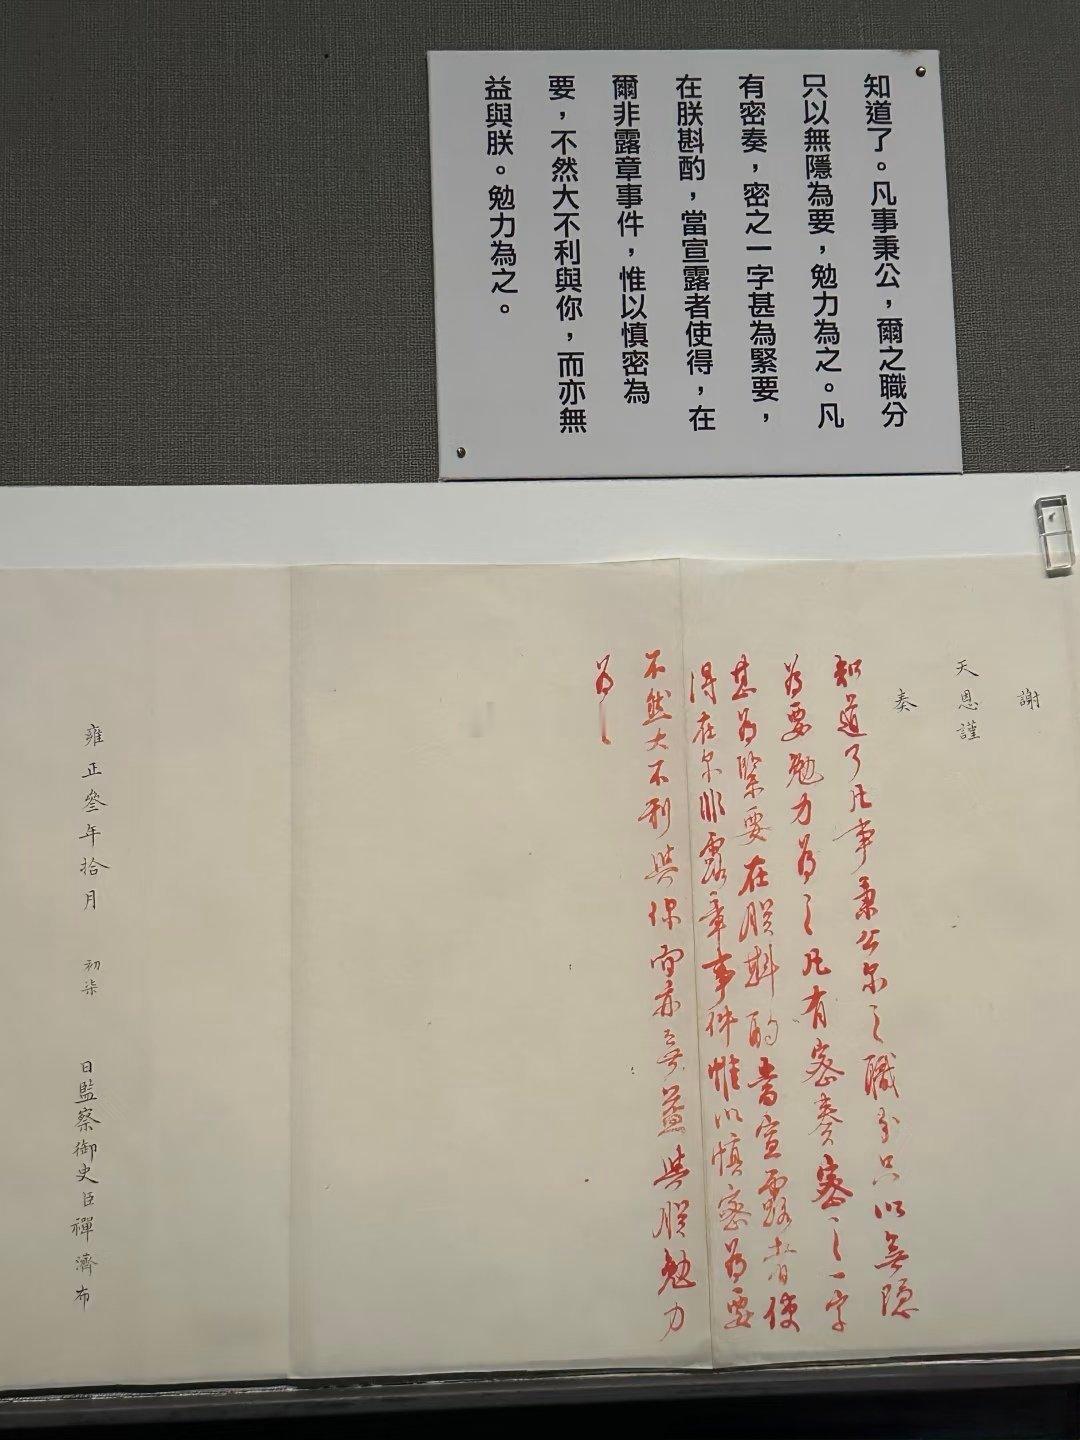 知道了。凡事秉公，爾之職分
只以無隱為要，勉力為之。凡
有密奏，密之一字甚為緊要，
在朕斟酌，當宣露者使得，在
爾非露章事件，惟以慎密為
要，不然大不利與你，而亦無
益與朕。勉力為之。
謝
天恩謹
奏
知道了凡事秉公尔之職分只以無隐
為要勉力為之凡有密奏密之一字
甚為緊要在朕斟酌當宣露者使
得在尔非露章事件惟以慎密為要
不然大不利與你而亦無益與朕勉力
為之
雍正叄年拾月初柒日監察御史臣禪濟布